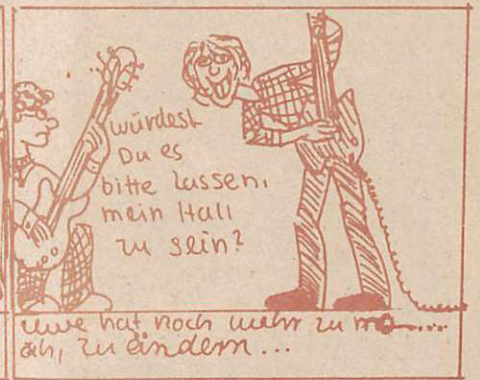 würdest
Du es
bitte lassen,
mein Hall
zu sein?
uwe hat noch mehr zu
äh, zu eindern...